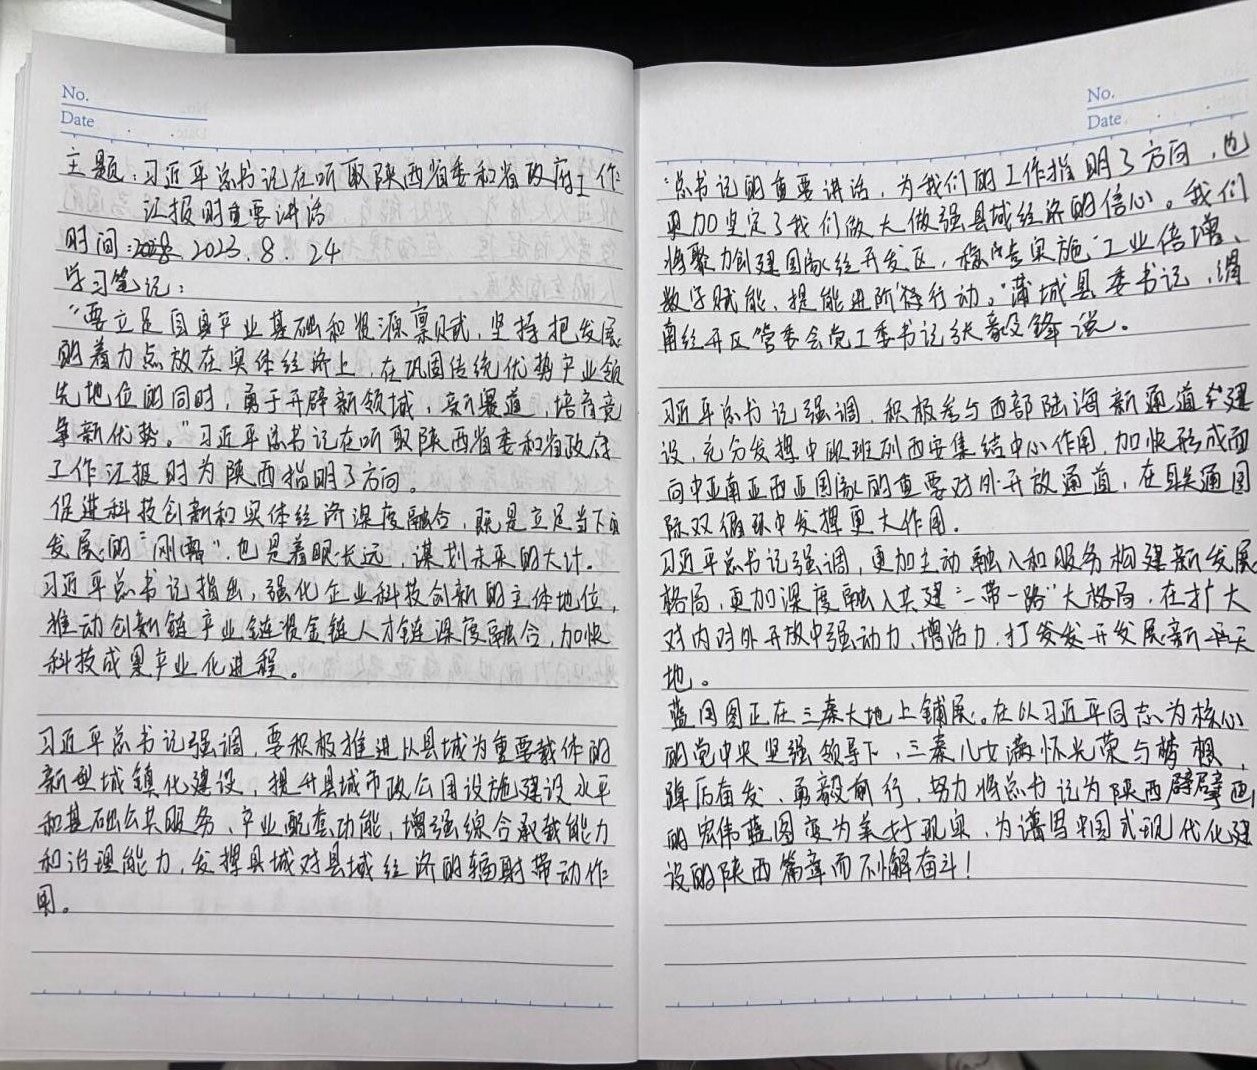 No.
Date
主题：习近平总书记在听取陕西省委和省政府工作
汇报时重要讲话
时间：2023.8.24
学习笔记：
“要立足自身产业基础和资源禀赋，坚持把发展
的着力点放在实体经济上，在巩固传统优势产业领
先地位的同时，勇于开辟新领域，新赛道，培育竞
争新优势。”习近平总书记在听取陕西省委和省政府
工作汇报时为陕西指明了方向。
促进科技创新和实体经济深度融合，既是立足当下
发展的“刚需”，也是着眼长远，谋划未来的大计。
习近平总书记指出，强化企业科技创新的主体地位，
推动创新链产业链资金链人才链深度融合，加快
科技成果产业化进程。
习近平总书记强调，要积极推进以县城为重要载体的
新型城镇化建设，提升县城市政公用设施建设水平
和基础公共服务、产业配套功能，增强综合承载能力
和治理能力，发挥县城对县域经济的辐射带动作
用。
No.
Date
“总书记的重要讲话，为我们的工作指明了方向，也
更加坚定了我们做大做强县域经济的信心。我们
将聚力创建国家级经开发区，实施“工业倍增、
数字赋能、提能进阶”行动。”蒲城县委书记，渭
南经开区管委会党工委书记张毅锋说。
习近平总书记强调，积极参与西部陆海新通道建
设，充分发挥中欧班列西安集结中心作用，加快形成面
向中亚南亚西亚国家的重要对外开放通道，在联通国
际双循环中发挥更大作用。
习近平总书记强调，更加主动融入和服务构建新发展
格局，更加深度融入共建“一带一路”大格局，在扩大
对内对外开放中强动力、增活力，打开发展新天
地。
蓝图正在三秦大地上铺展。在以习近平同志为核心
的党中央坚强领导下，三秦儿女满怀光荣与梦想，
踔厉奋发、勇毅前行，努力将总书记为陕西擘画
的宏伟蓝图变为美好现实，为谱写中国式现代化建
设的陕西篇章而不懈奋斗！